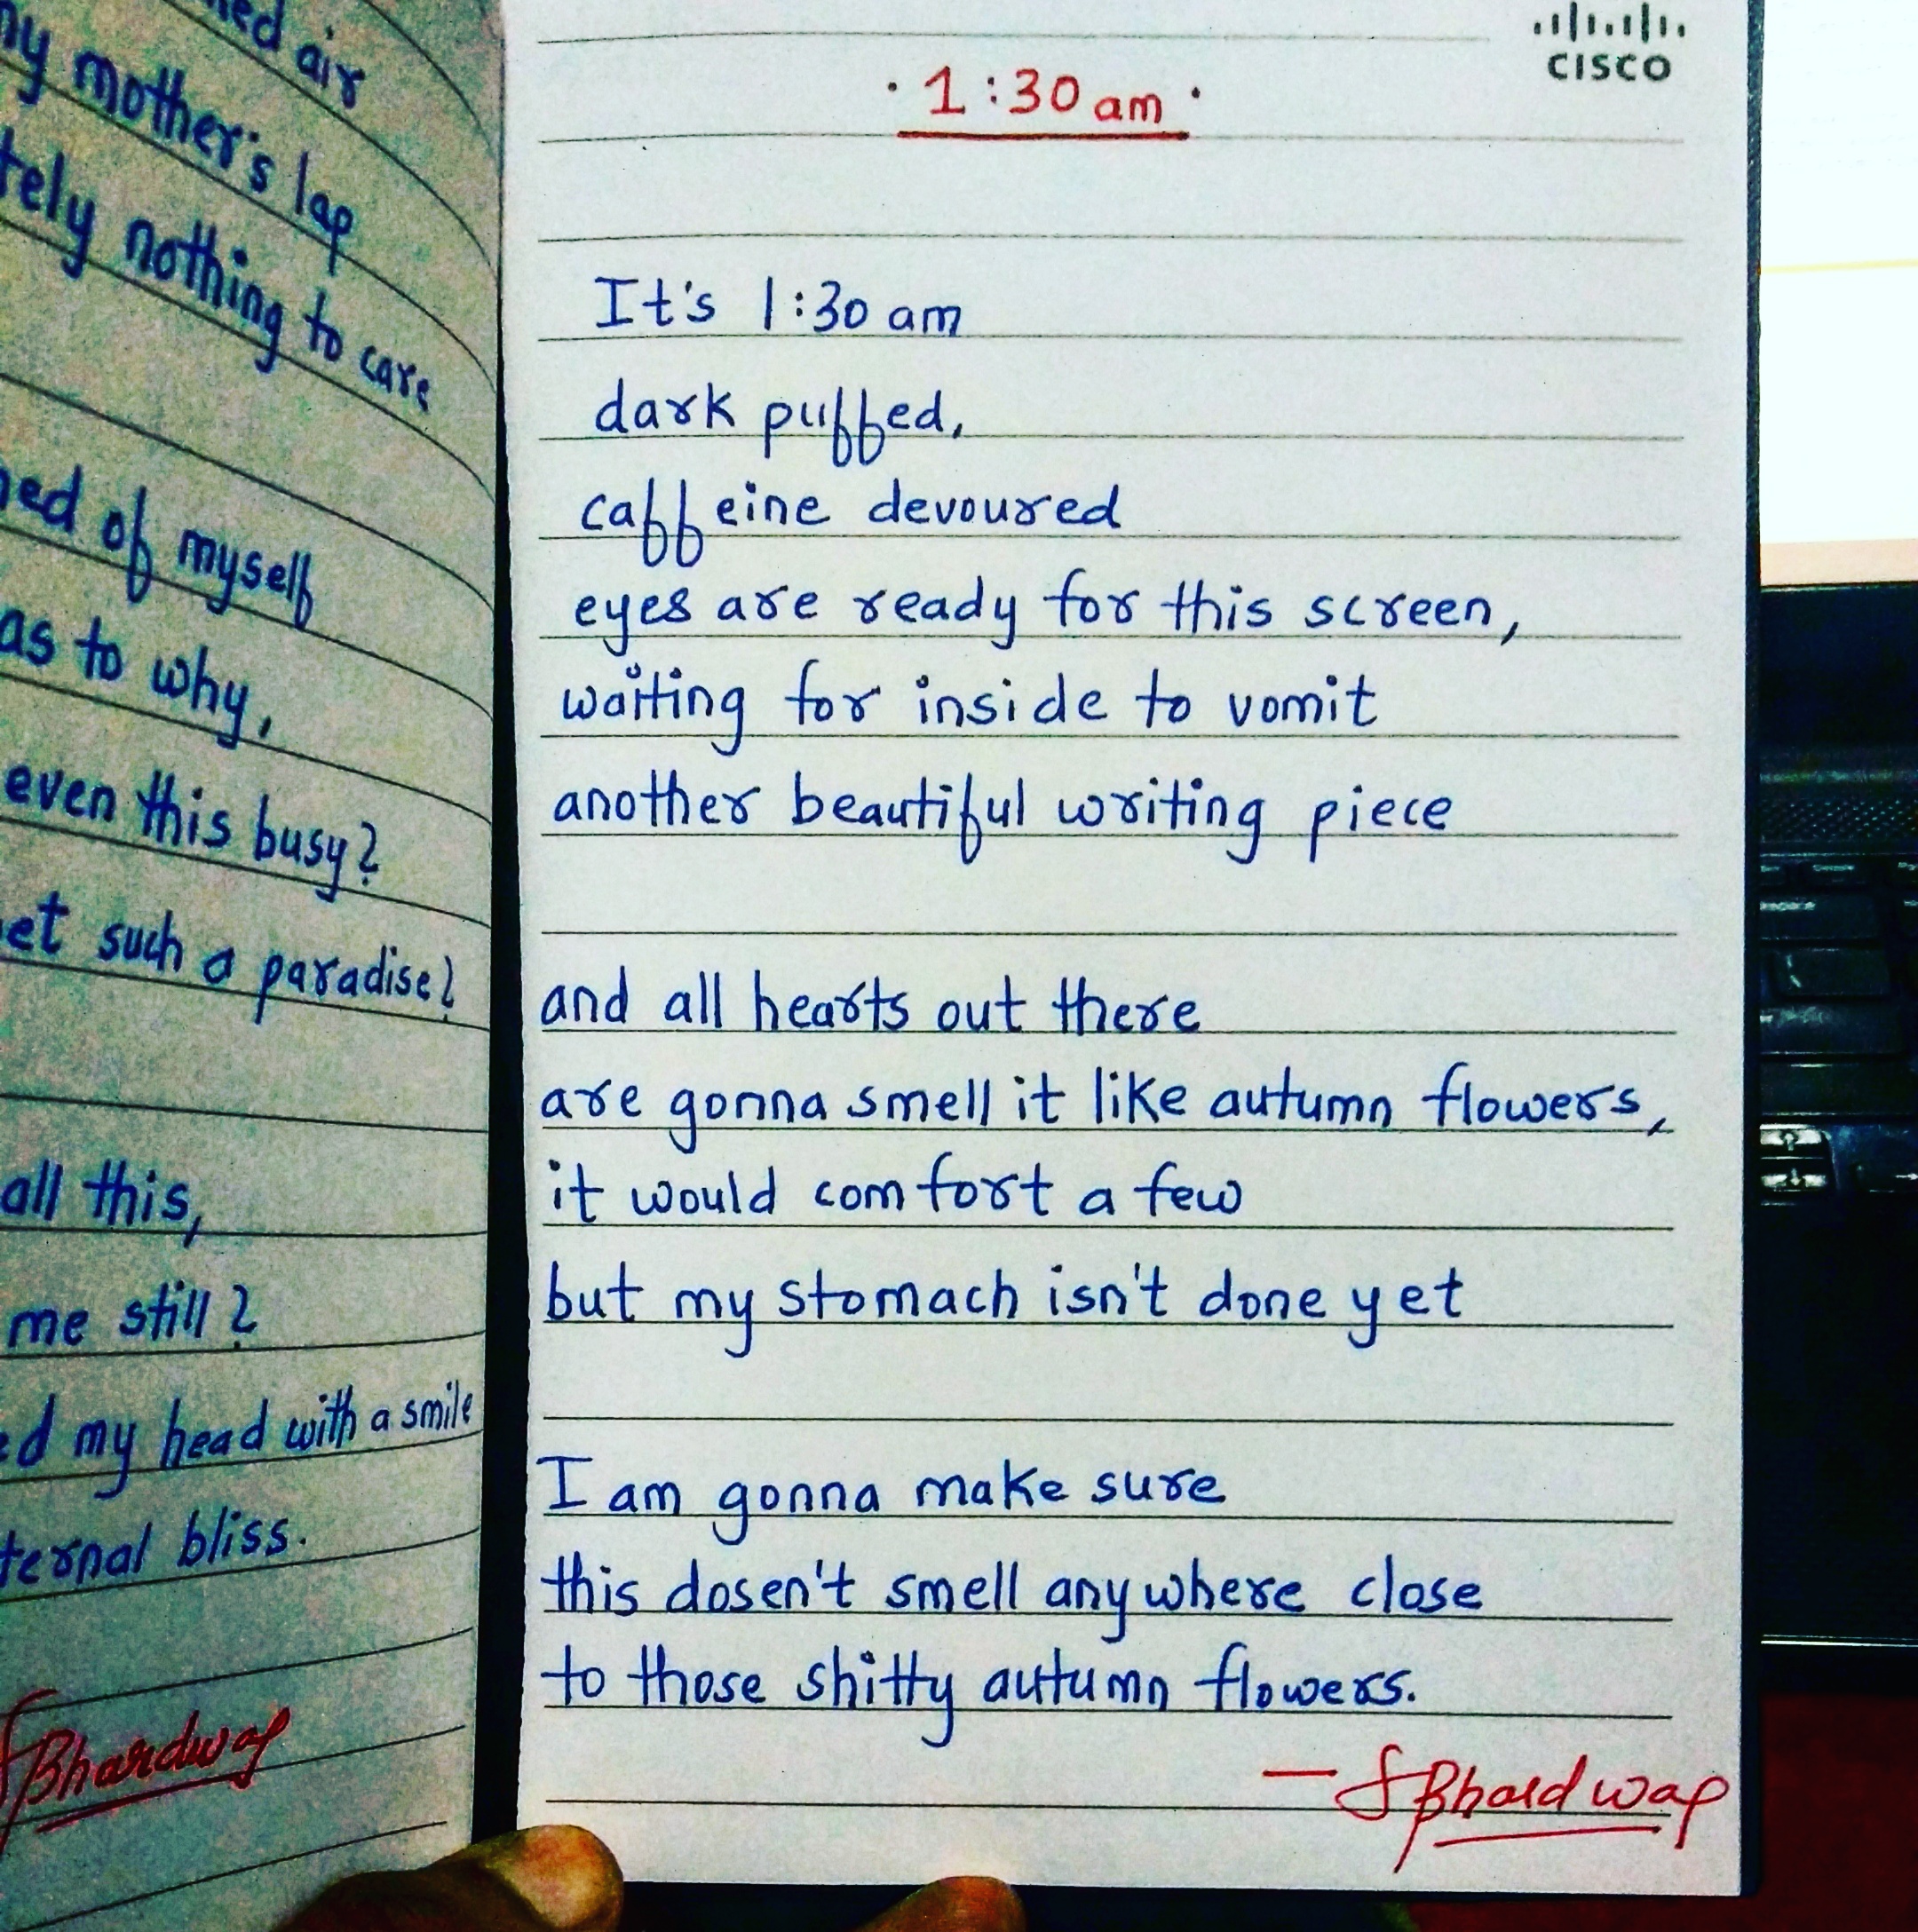 ned air
my mother's lap
tely nothing to care
ned of myself
as to why,
even this busy?
et such a paradise?
all this,
me still?
ed my head with a smile
ternal bliss.
SBhardwaj
CISCO
· 1:30 am ·
It's 1:30 am
dark puffed,
caffeine devoured
eyes are ready for this screen,
waiting for inside to vomit
another beautiful writing piece
and all hearts out there
are gonna smell it like autumn flowers,
it would comfort a few
but my stomach isn't done yet
I am gonna make sure
this dosen't smell anywhere close
to those shitty autumn flowers.
— SBhardwaj